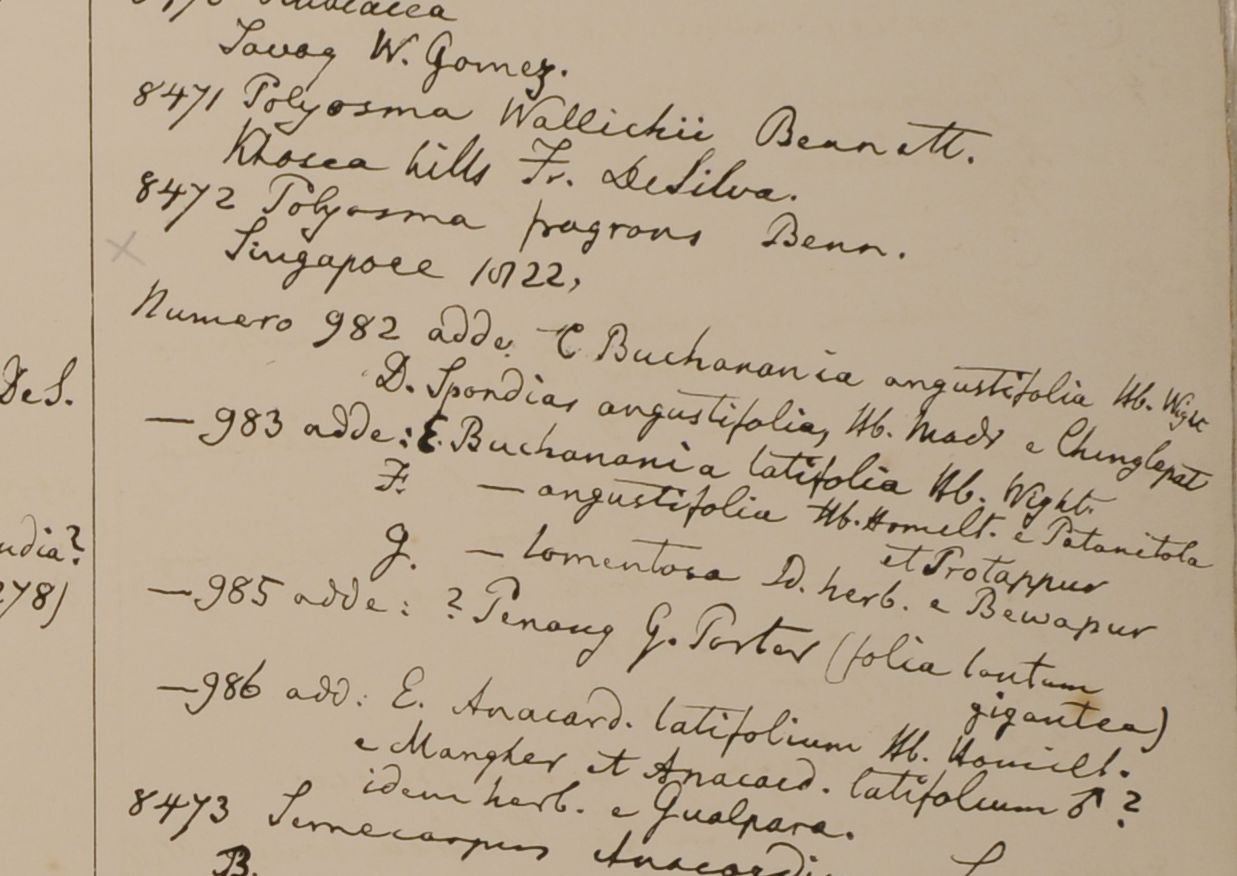 Tavoy W. Gomez.
8471 Polyosma Wallichii Bennett.
Khosea hills Fr. DeSilva.
8472 Polyosma fragrans Benn.
Singapore 1822,
DeS.
Numero 982 adde. C Buchanania angustifolia Hb. Wight
D. Spondias angustifolia, Hb. Madr e Chinglepat
— 983 adde: E. Buchanania latifolia Hb. Wight.
F. — angustifolia Hb. Hamelt. e Patanitola
et Protappur
G. — tomentosa Id. herb. e Bewapur
ndia?
278)
— 985 adde: ? Penang G. Porter (folia tantum
gigantea)
— 986 add: E. Anacard. latifolium Hb. Hamilt.
e Mangher et Anacard. latifolium ♂ ?
idem herb. e Gualpara.
8473 Semecarpus
B.